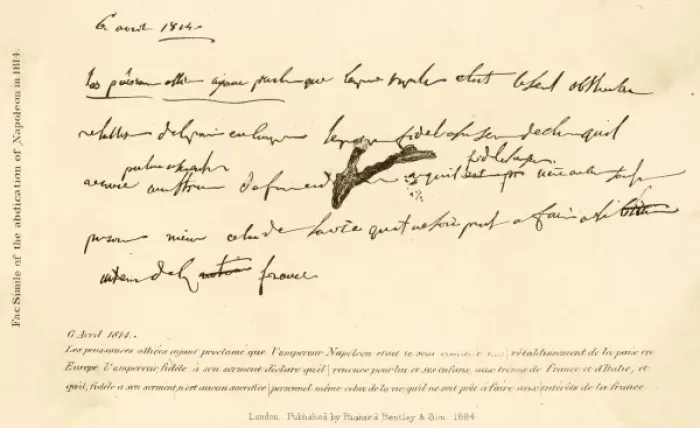 6 avril 1814.
Les puissances alliées ayant proclamé que l'empereur était le seul obstacle au
rétablissement de la paix en Europe l'empereur fidèle à son serment déclare qu'il
pour lui et ses enfans
fidèle à son serment
renonce aux trônes de France et qu'il n'est aucun sacrifice
personnel même celui de la vie qu'il ne soit prêt à faire
intérêts de la France
Fac Simile of the abdication of Napoleon in 1814.
6 Avril 1814.
Les puissances alliées ayant proclamé que l'empereur Napoléon était le seul rétablissement de la paix en
Europe l'empereur, fidèle à son serment déclare qu'il renonce pour lui et ses enfans, aux trônes de France et d'Italie, et
qu'il, fidèle à son serment, n'est aucun sacrifice personnel même celui de la vie, qu'il ne soit prêt à faire aux intérêts de la france.
London. Published by Richard Bentley & Son. 1884